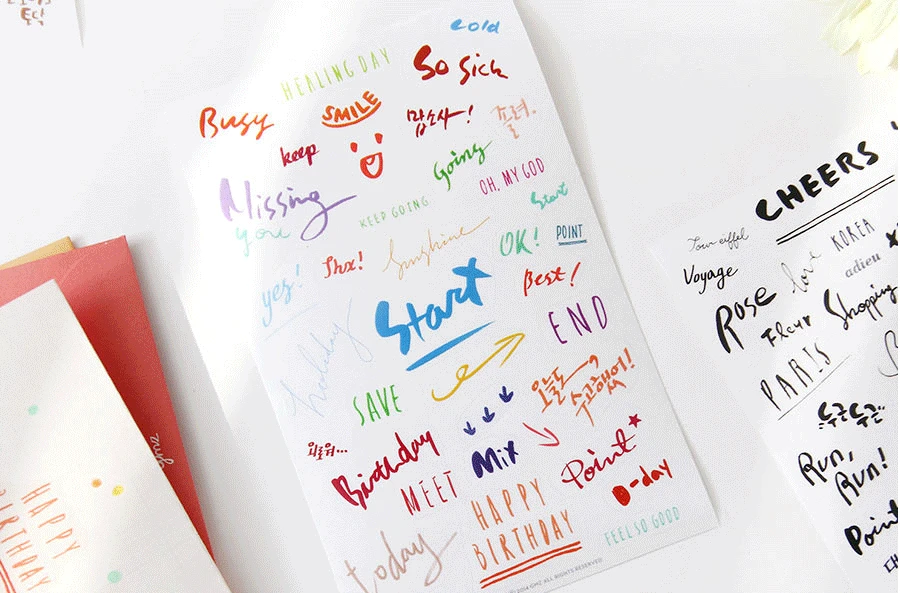 토닥
cold
HEALING DAY
So Sick
Busy
SMILE
맙소사~!
졸려.
keep
Going
OH, MY GOD
Missing
you
KEEP GOING
Start
yes!
Thx!
Sunshine
OK!
POINT
Start
Best!
holiday
END
SAVE
오늘도
수고했어!
외로워...
Birthday
MEET
Mix
Point
D-day
today
HAPPY
BIRTHDAY
FEEL SO GOOD
© 2014 GMZ ALL RIGHTS RESERVED
HAPPY
BIRTHDAY
CHEERS
Tour eiffel
Voyage
love
KOREA
adieu
Rose
Fleur
Shopping
PARIS
두근두근
Run,
Run!
Point